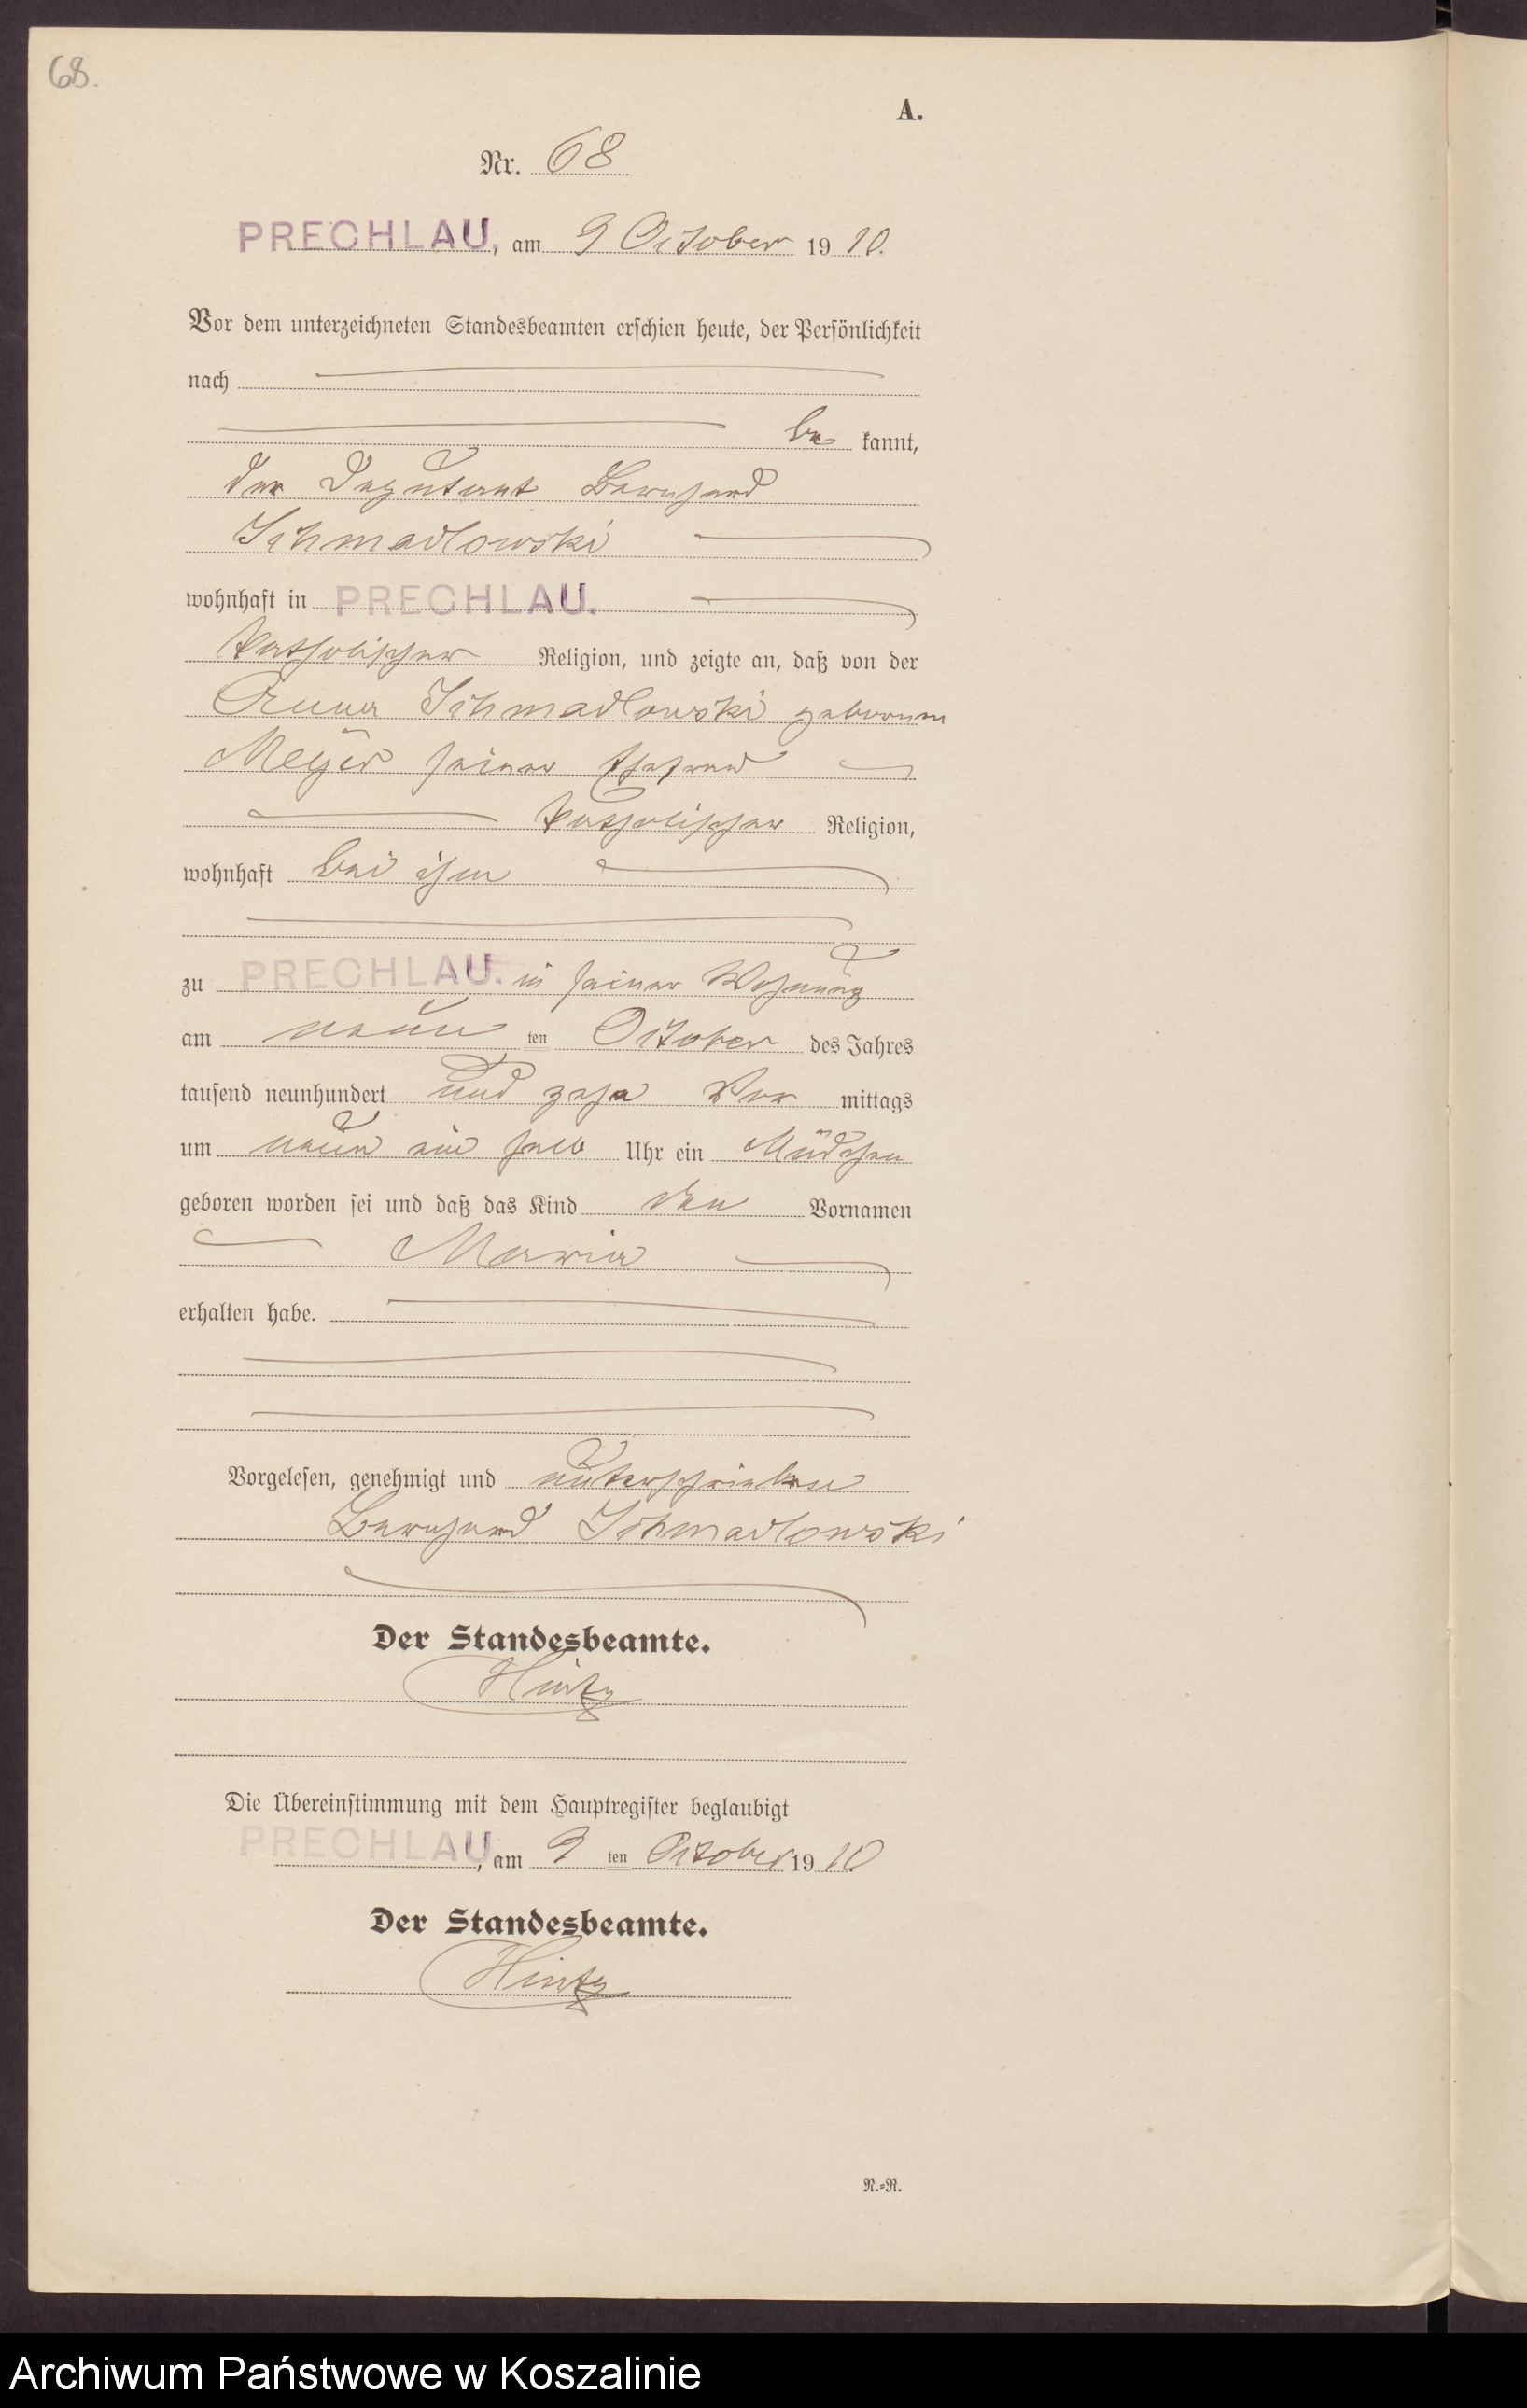 68.
A.
Nr. 68
PRECHLAU, am 9 October 1910.
Vor dem unterzeichneten Standesbeamten erschien heute, der Persönlichkeit
nach
be kannt,
der Deputant Bernhard
Schmadlowski
wohnhaft in PRECHLAU.
katholischer Religion, und zeigte an, daß von der
Anna Schmadlowski geborene
Meyer seiner Ehefrau
katholischer Religion,
wohnhaft bei ihm
zu PRECHLAU. in seiner Wohnung
am neun ten October des Jahres
tausend neunhundert und zehn Vor mittags
um neun ein halb Uhr ein Mädchen
geboren worden sei und daß das Kind den Vornamen
Maria
erhalten habe.
Vorgelesen, genehmigt und unterschrieben
Bernhard Schmadlowski
Der Standesbeamte.
Hintz
Die Übereinstimmung mit dem Hauptregister beglaubigt
PRECHLAU, am 9 ten October 1910
Der Standesbeamte.
Hintz
N.=R.
Archiwum Państwowe w Koszalinie